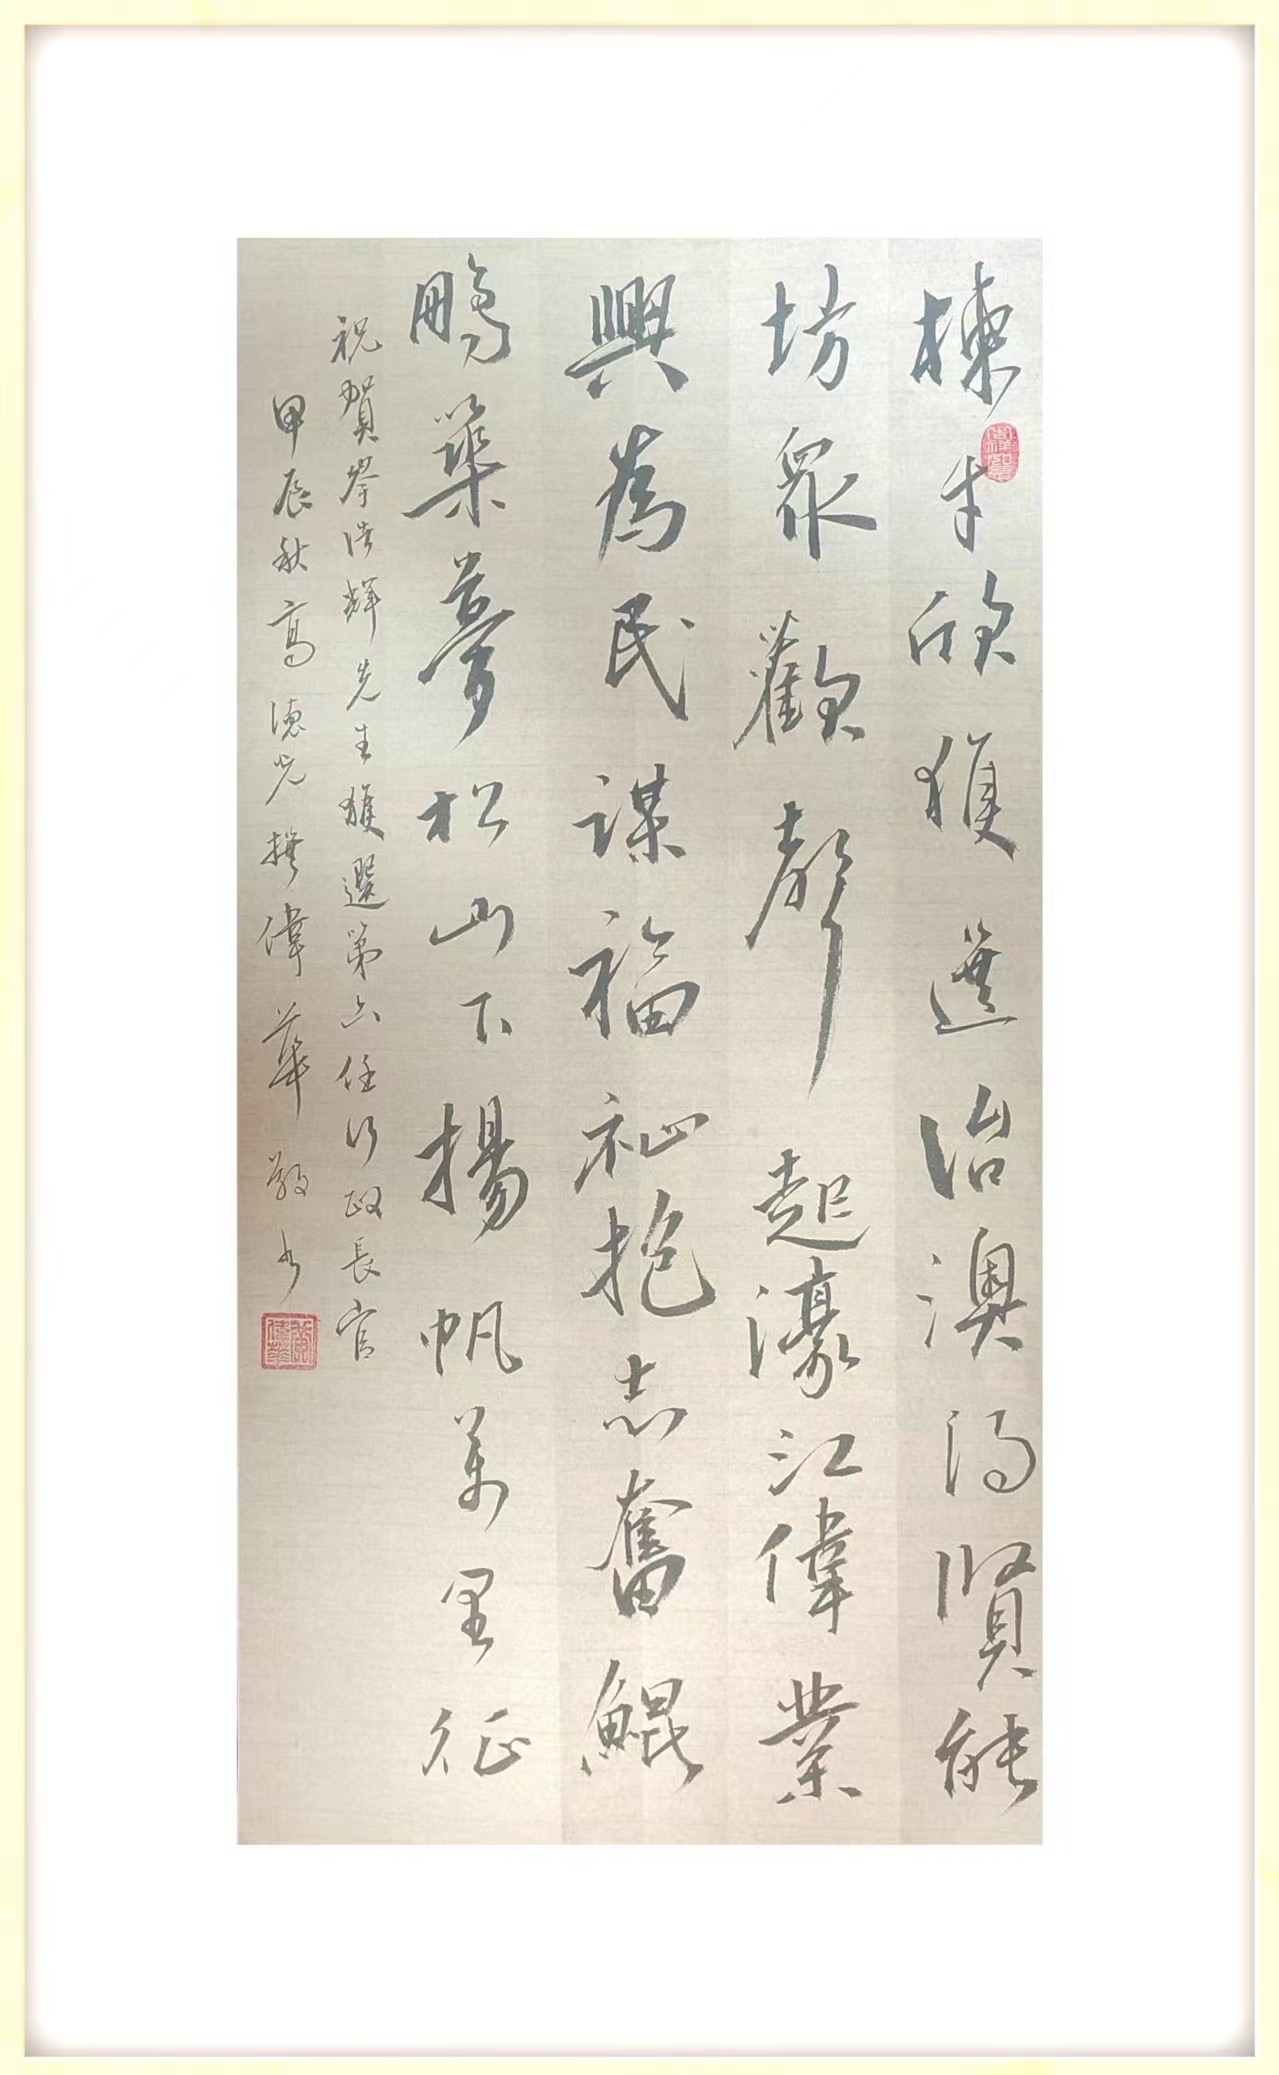 棟才欣獲選治澳得賢能
坊眾歡聲起濠江偉業
興為民謀福祉抱志奮鯤
鵬築夢松山下揚帆萬里征
祝賀岑浩輝先生獲選第六任行政長官
甲辰秋高德光撰偉華敬書